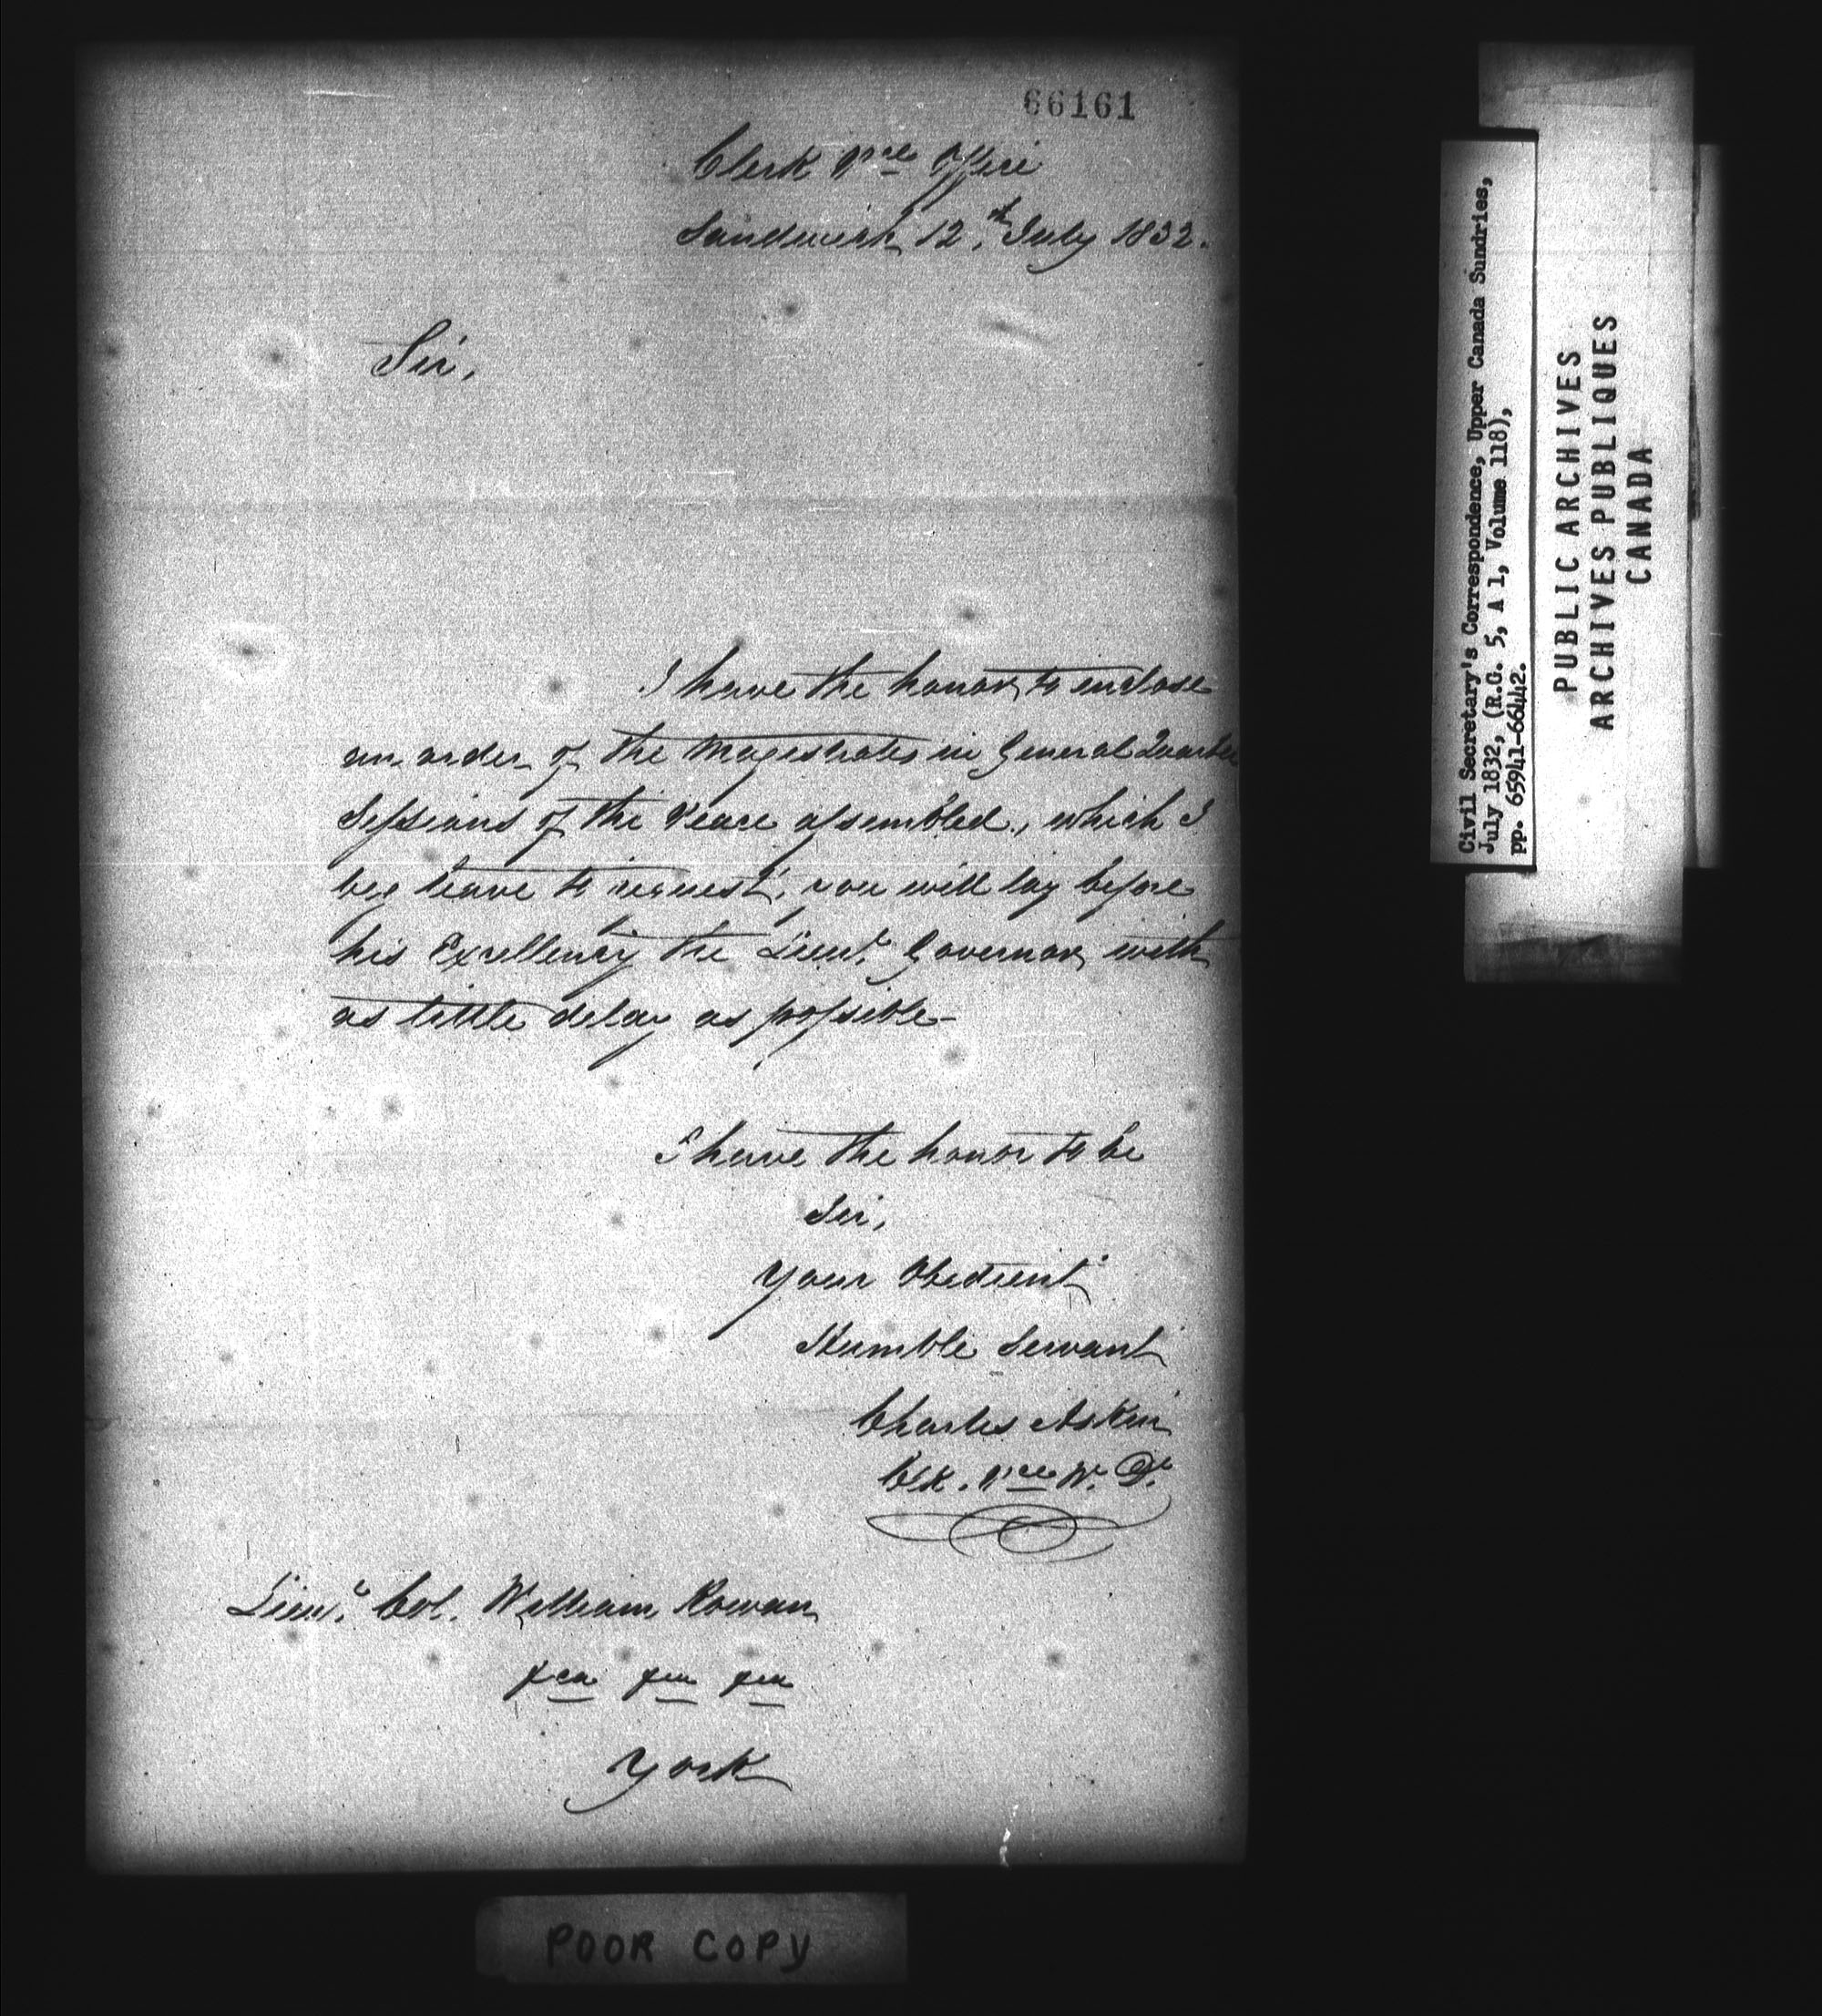 66161
Clerk Pce Office
Sandwich 12th July 1832.
Sir,
I have the honor to enclose
an order of the Magistrates in General Quarter
Sessions of the Peace assembled, which I
beg leave to request, you will lay before
his Excellency the Lieut. Governor with
as little delay as possible-
I have the honor to be
Sir,
Your Obedient
Humble Servant
Charles Askin
Clk. Pce W. Dt.
Lieut. Col. William Rowan
&ca &ca &ca
York
POOR COPY
Civil Secretary's Correspondence, Upper Canada Sundries,
July 1832, (R.G. 5, A 1, Volume 118),
pp. 65941-66442.
PUBLIC ARCHIVES
ARCHIVES PUBLIQUES
CANADA